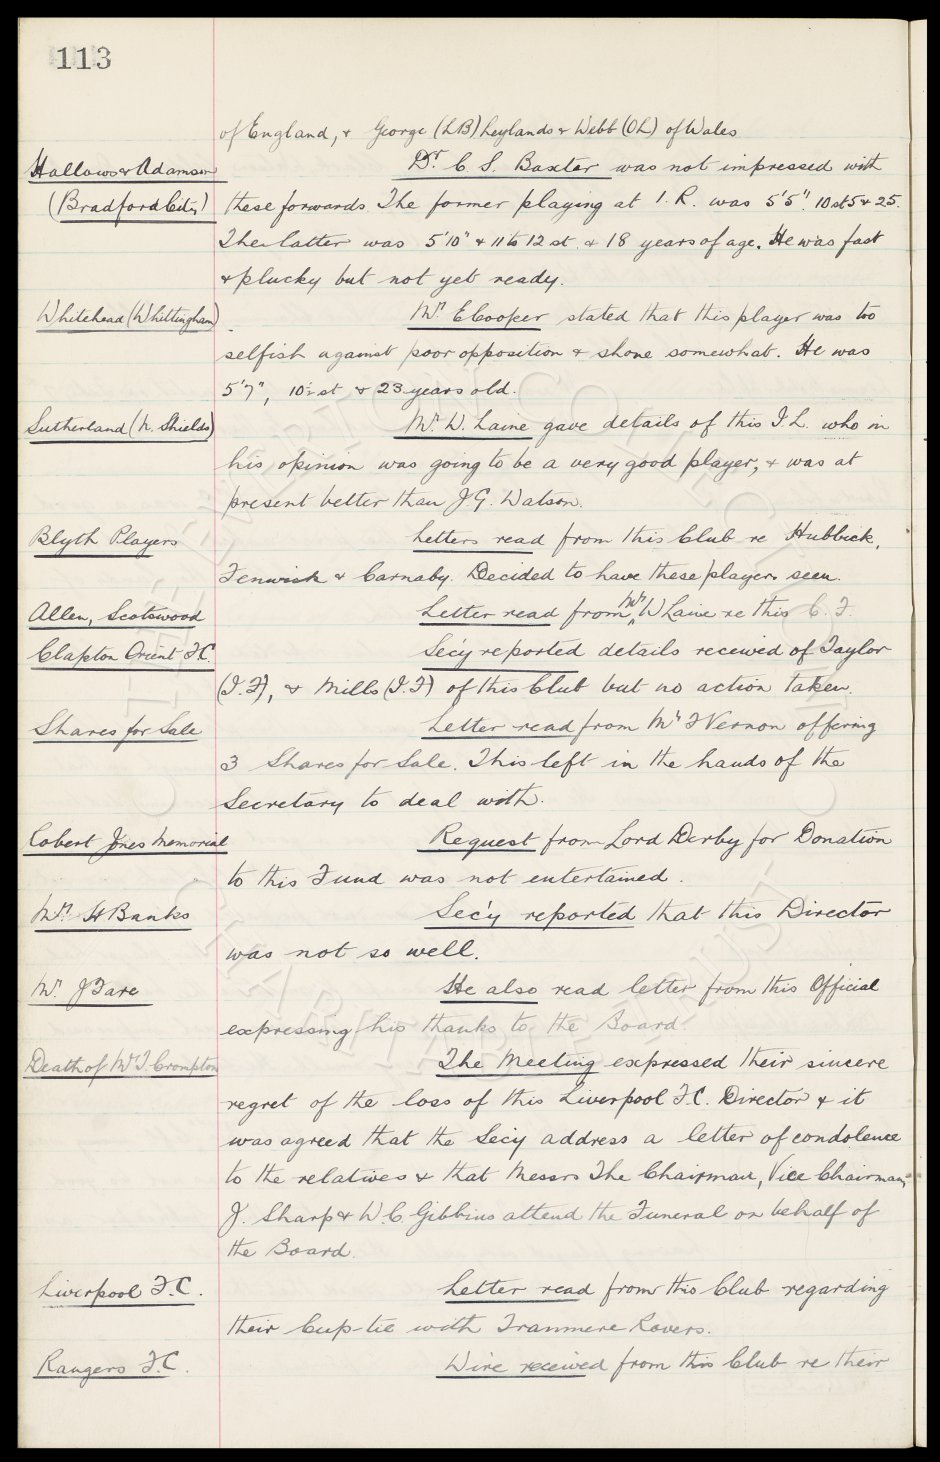 113
of England, & George (LB) Leylands & Webb (OL) of Wales
Hallows & Adamson Dr. C. S. Baxter was not impressed with
(Bradford City) these forwards. The former playing at I.R. was 5'5", 10st5 & 25.
The latter was 5'10" & 11 to 12 st, & 18 years of age. He was fast
& plucky but not yet ready.
Whitehead (Whittingham) Mr. E Cooper stated that this player was too
selfish against poor opposition & shone somewhat. He was
5'7", 10½ st & 23 years old.
Sutherland (N. Shields) Mr. W. Laine gave details of this I.L. who in
his opinion was going to be a very good player, & was at
present better than J.G. Watson.
Blyth Players Letters read from this Club re Hubbick,
Fenwick & Carnaby. Decided to have these players seen.
Allen, Scotswood Letter read from Mr. W Laine re this C. F.
Clapton Orient F.C. Sec'y reported details received of Taylor
(I.F), & Mills (I.F) of this Club but no action taken.
Shares for Sale Letter read from Mr F Vernon offering
3 Shares for Sale. This left in the hands of the
Secretary to deal with.
Robert Jones Memorial Request from Lord Derby for Donation
to this Fund was not entertained.
Mr. H Banks Sec'y reported that this Director
was not so well.
Mr. J Fare He also read letter from this Official
expressing his thanks to the Board.
Death of Mr T. Crompton The Meeting expressed their sincere
regret of the loss of this Liverpool F.C. Director & it
was agreed that the Secy address a letter of condolence
to the relatives & that Messrs The Chairman, Vice Chairman,
J. Sharp & W.C. Gibbins attend the Funeral on behalf of
the Board.
Liverpool F.C. Letter read from this Club regarding
their Cup-tie with Tranmere Rovers.
Rangers F.C. Wire received from this Club re their